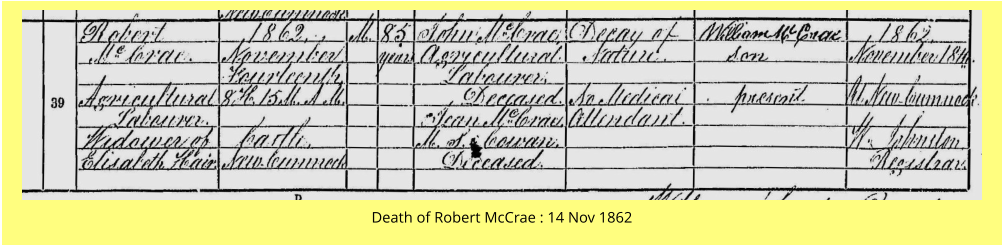 New Cumnock
Robert 1862, M. 85 John McCrae, Decay of William McCrae 1862
McCrae. November years Agricultural Nature. son November 18th
Fourteenth Labourer.
39 Agricultural 8 H. 15 M. A.M. Deceased. No Medical present At New Cumnock
Labourer. Jean McCrae Attendant.
Widower of Castle M. S. Cowan. Wm Johnston
Elisabeth Hair. New Cumnock Deceased. Registrar.
Death of Robert McCrae : 14 Nov 1862